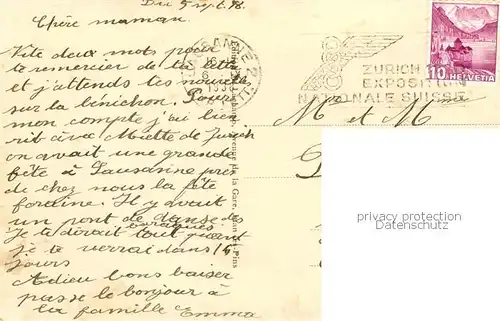 Du 5 sept. 38.
Chère maman.
Vite deux mots pour
te remercier de ta lettre
et j'attends tes nouvelle
sur la bénichon. Pour
mon compte j'ai bien
rit avec Miette de Zurich
on avait une grande
fête à Lausanne près
de chez nous la fête
foraine. Il y avait
un pont de danse des
baraques
Je te dirait tout quant
je te verrai dans 15
jours
Adieu bons baiser
passe le bonjour à
la famille Emma
LAUSANNE
ZURICH
EXPOSITION
NATIONALE SUISSE
10 HELVETIA
M et Mme
privacy protection
Datenschutz